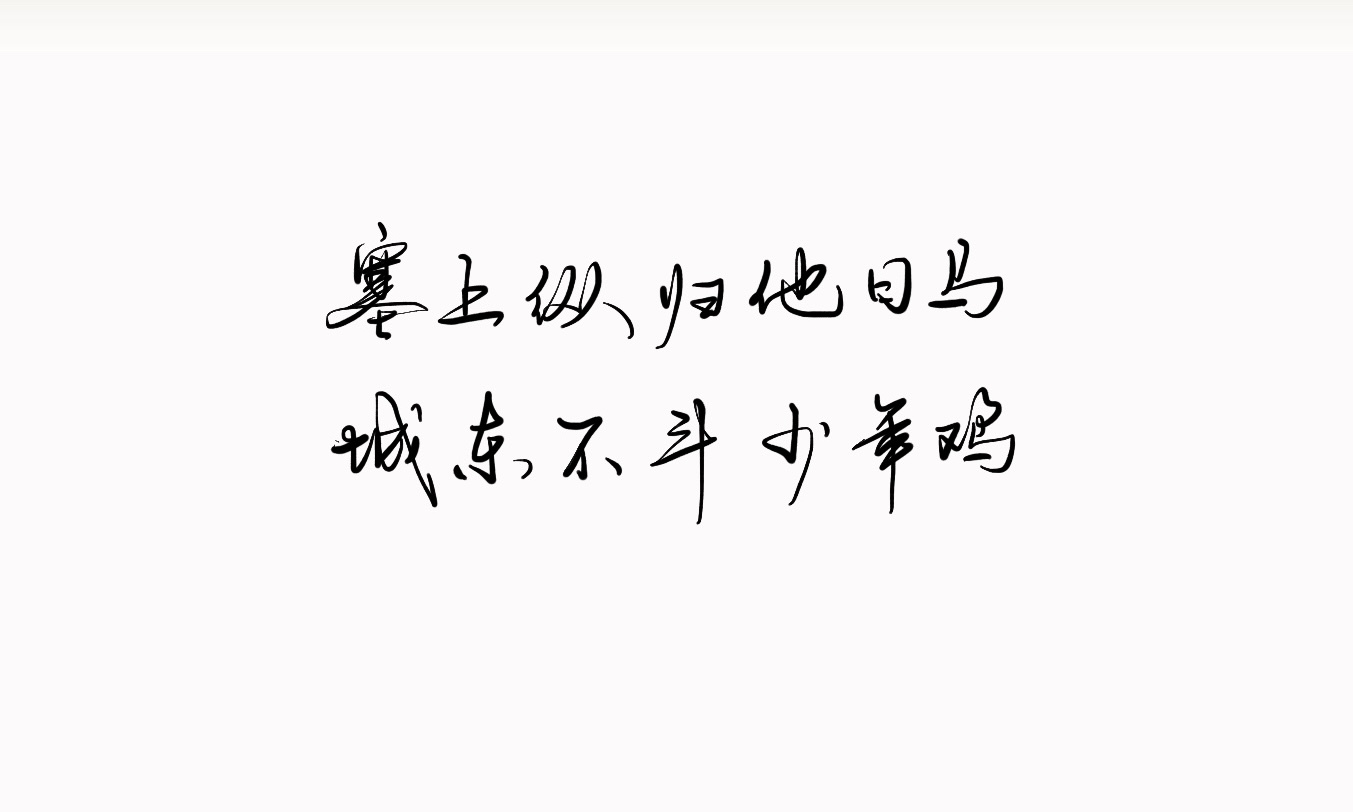 塞上纵归他日马
城东不斗少年鸡